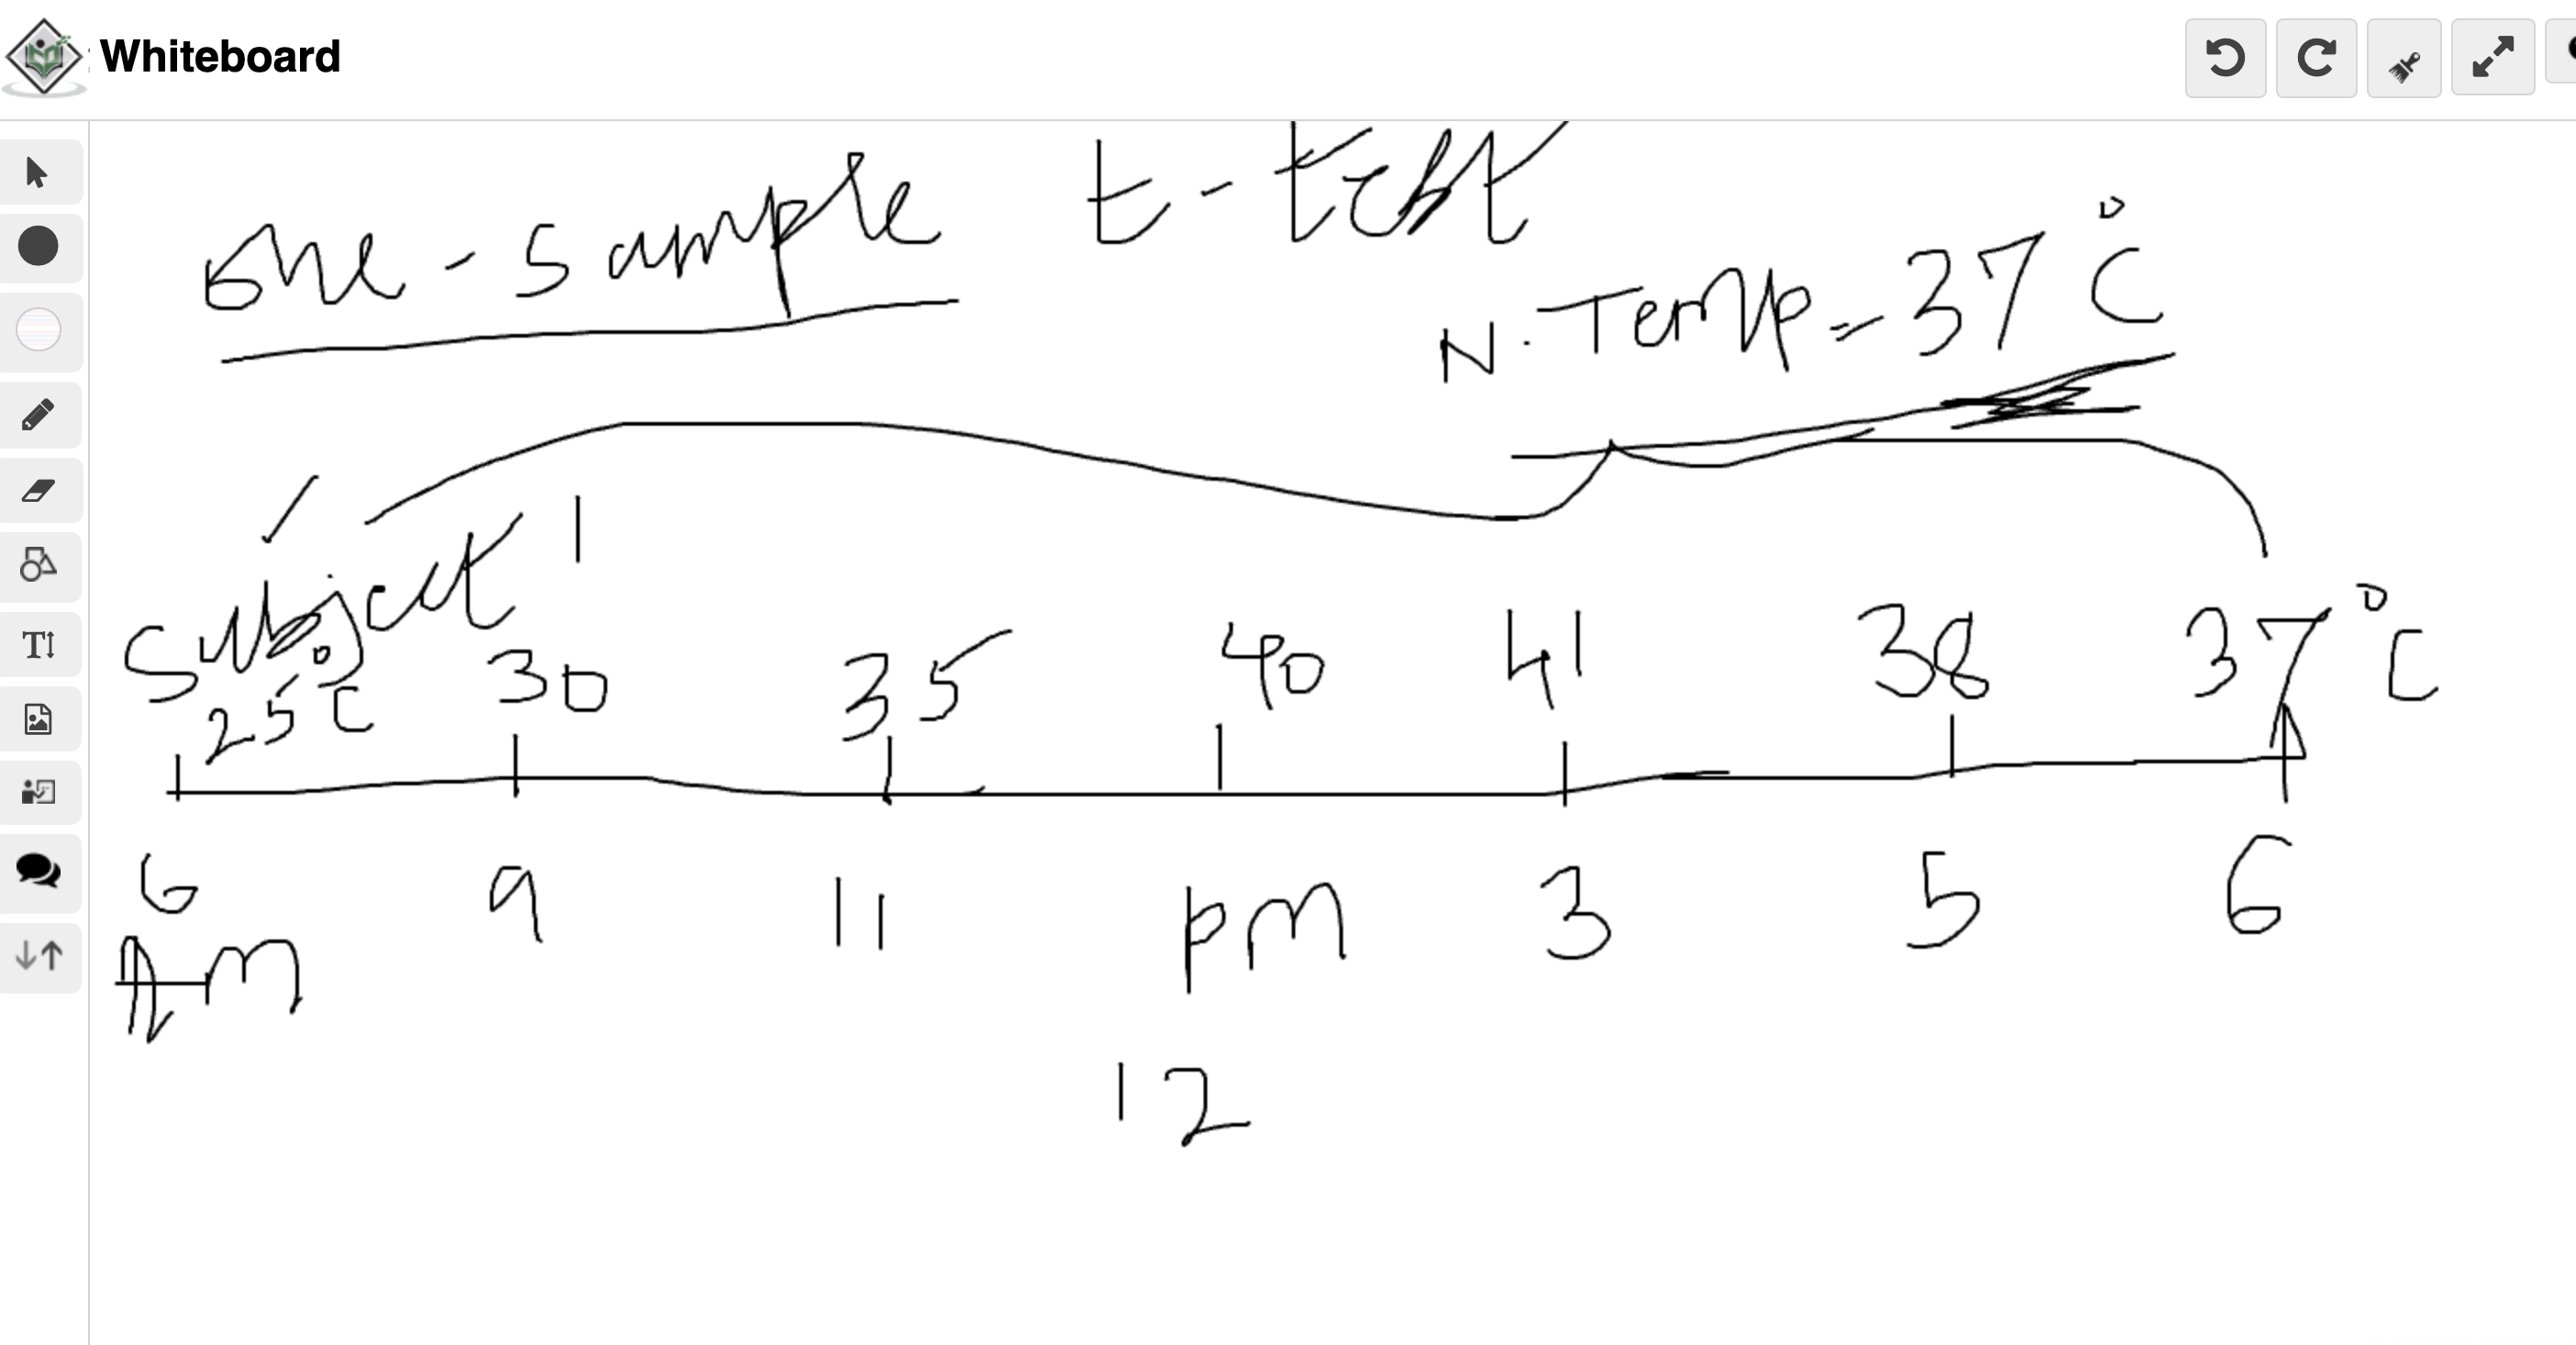 Whiteboard
One - Sample t - test
N. Temp = 37°C
Subject 1
25°C 30 35 40 41 38 37°C
6 9 11 pm 3 5 6
Am
12